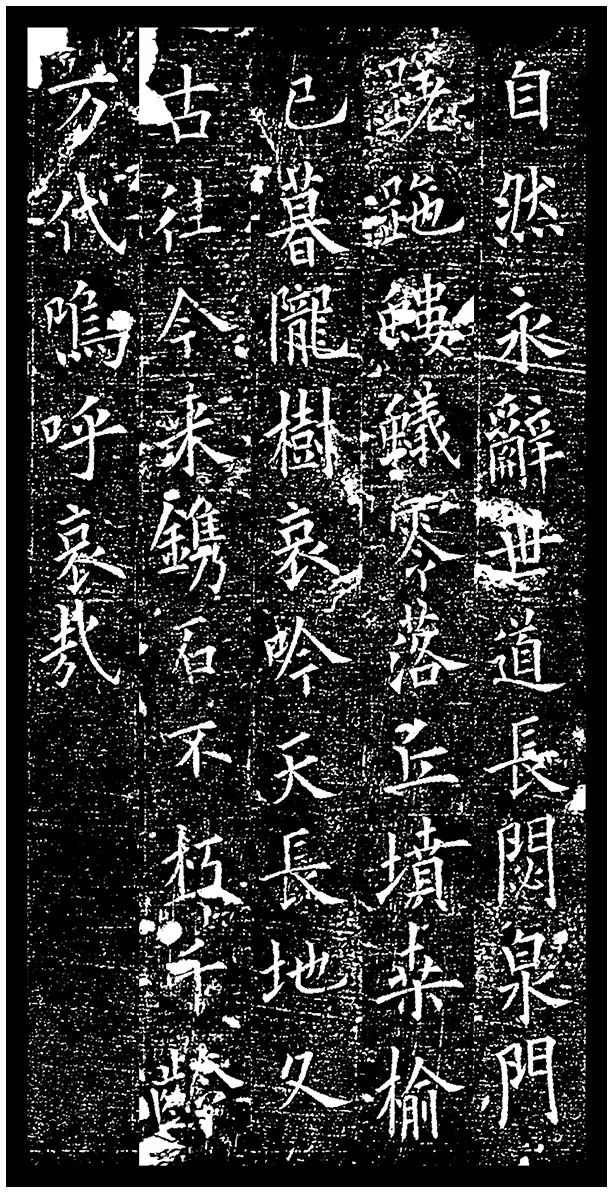 自然永辭世道長閟泉門
蹉跎螻蟻零落丘墳桒榆
已暮隴樹哀吟天長地久
古往今来鐫石不朽千齡
万代嗚呼哀哉